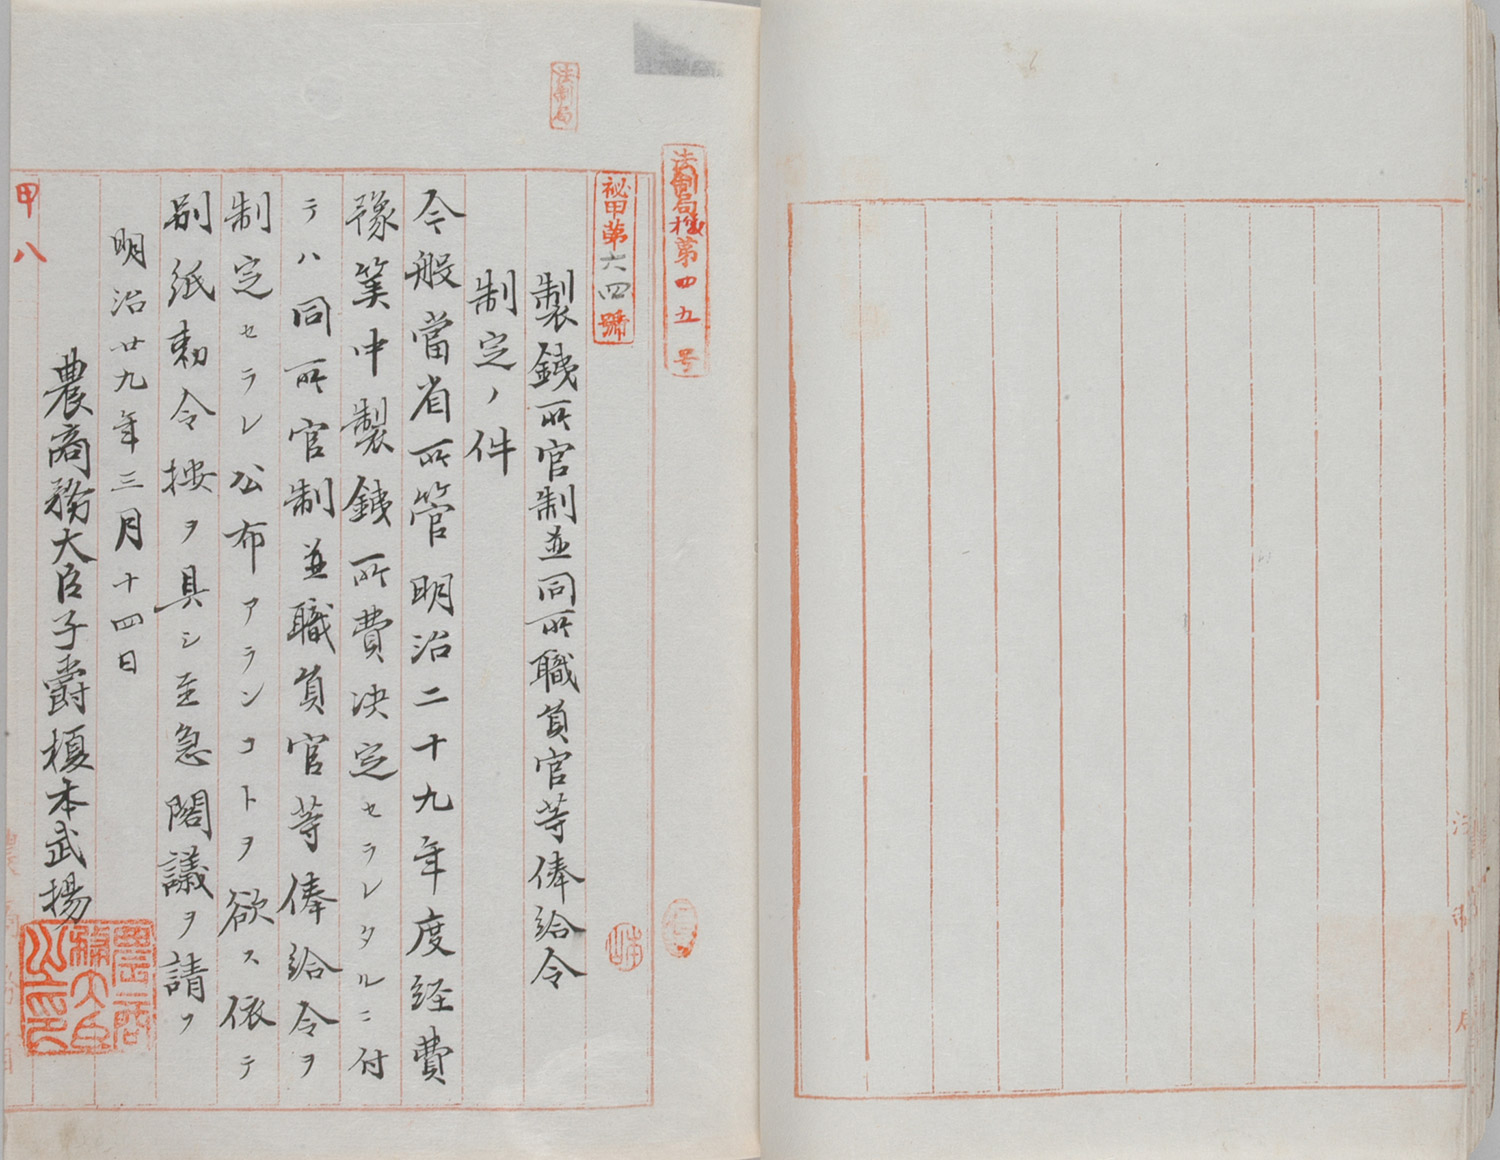 法制局
法制局機第四五号
秘甲第六四號
製鉄所官制並同所職員官等俸給令
制定ノ件
今般當省所管明治二十九年度経費
豫算中製鉄所費决定セラレタルニ付
テハ同所官制並職員官等俸給令ヲ
制定セラレ公布アランコトヲ欲ス依テ
別紙勅令按ヲ具シ至急閣議ヲ請フ
明治廿九年三月十四日
農商務大臣子爵榎本武揚
農商務大臣之印
甲八